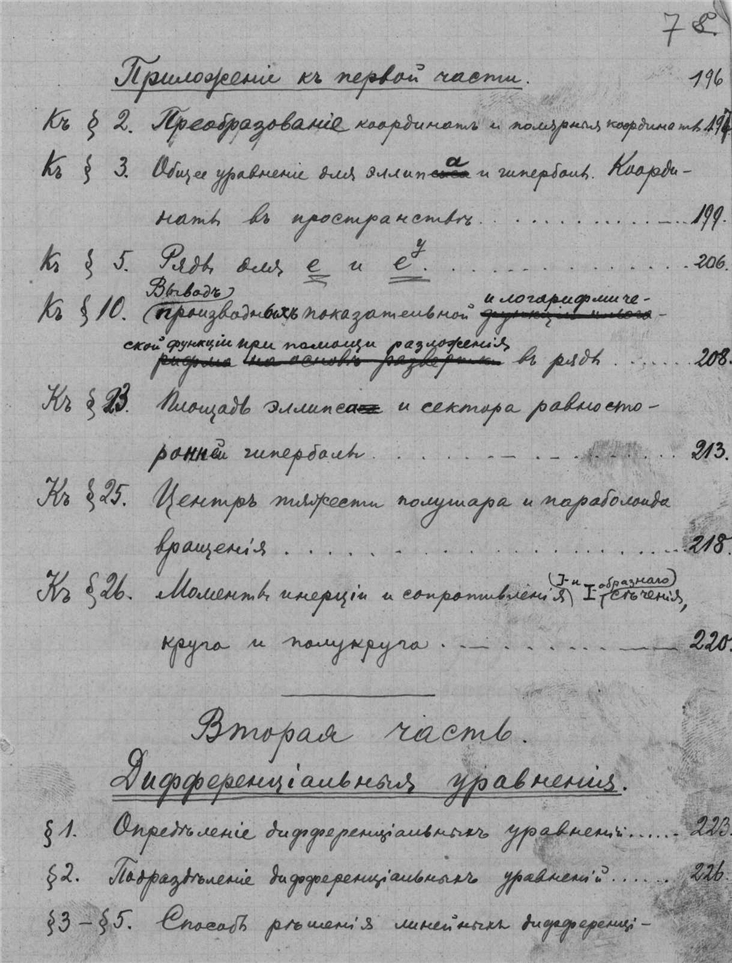 78.
Приложеніе къ первой части. 196
Къ § 2. Преобразованіе координатъ и полярныя координаты 197
Къ § 3. Общее уравненіе для эллипса и гиперболы. Коорди-
наты въ пространствѣ. . . . . . . . . . 199.
Къ § 5. Ряды для e и e^y. . . . . . . . . . 206.
Выводъ и логарифмиче-
Къ § 10. производныхъ показательной
ской функціи при помощи разложенія
въ ряды . . . . . . 208.
Къ § 23. Площадь эллипса и сектора равносто-
ронней гиперболы . . . . . . . . . . 213.
Къ § 25. Центръ тяжести полушара и параболоида
вращенія . . . . . . . . . . 218.
Къ § 26. Моменты инерціи и сопротивленія (J- и I-образнаго) сѣченія,
круга и полукруга . . . . . . . . . . 220.
Вторая часть.
Дифференціальныя уравненія.
§ 1. Опредѣленіе дифференціальныхъ уравненій . . . . . . 223.
§ 2. Подраздѣленіе дифференціальныхъ уравненій . . . . . . 226.
§ 3 – § 5. Способъ рѣшенія линейныхъ дифференці-